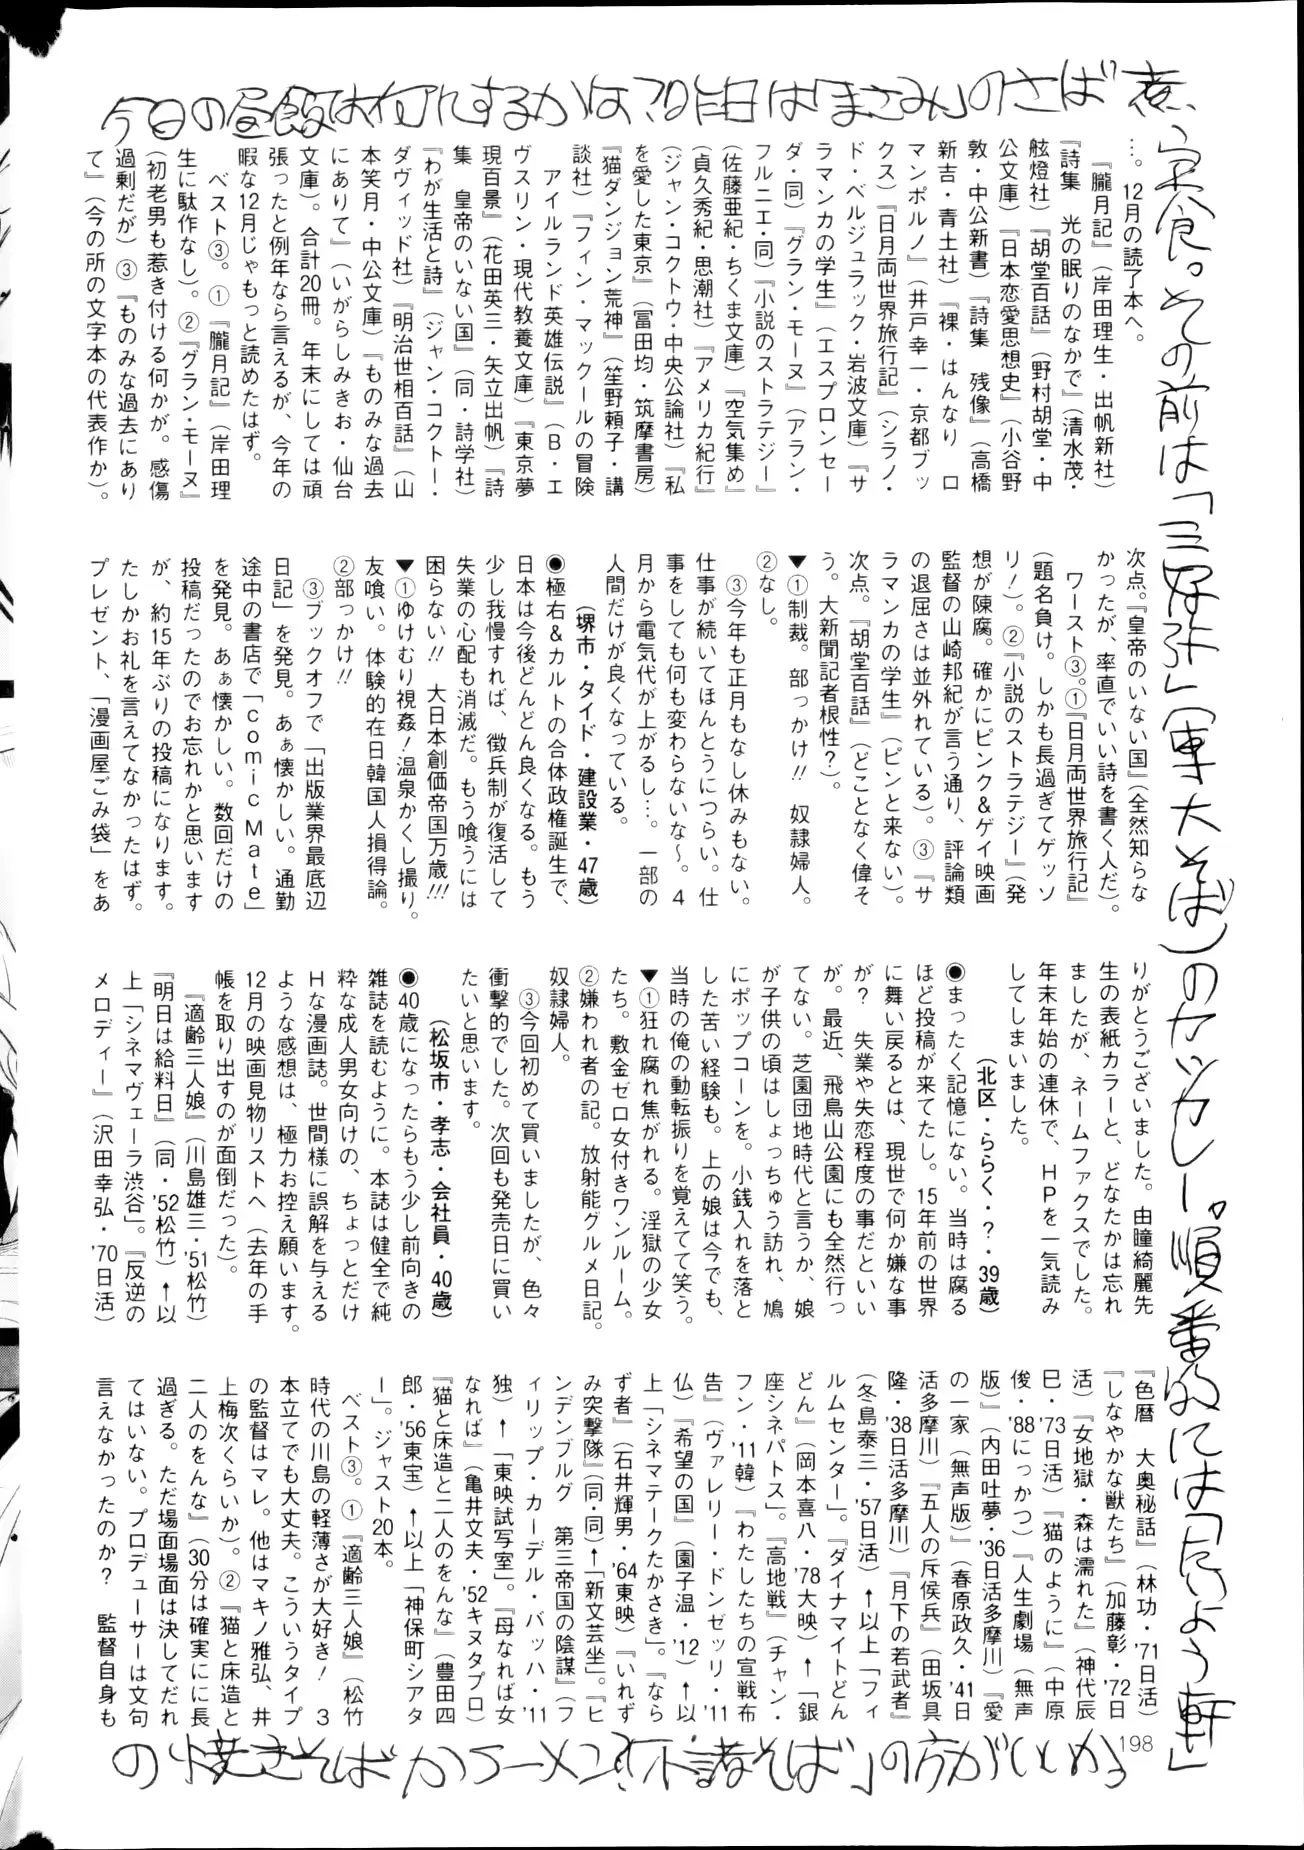 今日の昼飯は何にするかは?昨日は「まさみ」のさば煮
定食。その前は「三好弥」(車大そば)のカツカレー。順番的には「たいよう軒」
の焼きそばかラーメン?「不諸そば」の方がいいか。
…。12月の読了本へ。
『朧月記』(岸田理生・出帆新社)
『詩集 光の眠りのなかで』(清水茂・
舷燈社)『胡堂百話』(野村胡堂・中
公文庫)『日本恋愛思想史』(小谷野
敦・中公新書)『詩集 残像』(高橋
新吉・青土社)『裸・はんなり ロ
マンポルノ』(井戸幸一・京都ブッ
クス)『日月両世界旅行記』(シラノ・
ド・ベルジュラック・岩波文庫)『サ
ラマンカの学生』(エスプロンセー
ダ・同)『グラン・モーヌ』(アラン・
フルニエ・同)『小説のストラテジー』
(佐藤亜紀・ちくま文庫)『空気集め』
(貞久秀紀・思潮社)『アメリカ紀行』
(ジャン・コクトウ・中央公論社)『私
を愛した東京』(冨田均・筑摩書房)
『猫ダンジョン荒神』(笙野頼子・講
談社)『フィン・マックールの冒険
アイルランド英雄伝説』(B・エ
ヴスリン・現代教養文庫)『東京夢
現百景』(花田英三・矢立出帆)『詩
集 皇帝のいない国』(同・詩学社)
『わが生活と詩』(ジャン・コクトー・
ダヴィッド社)『明治世相百話』(山
本笑月・中公文庫)『ものみな過去
にありて』(いがらしみきお・仙台
文庫)。合計20冊。年末にしては頑
張ったと例年なら言えるが、今年の
暇な12月じゃもっと読めたはず。
ベスト③。①『朧月記』(岸田理
生に駄作なし)。②『グラン・モーヌ』
(初老男も惹き付ける何かが。感傷
過剰だが)③『ものみな過去にあり
て』(今の所の文字本の代表作か)。
次点。『皇帝のいない国』(全然知らな
かったが、率直でいい詩を書く人だ)。
ワースト③。①『日月両世界旅行記』
(題名負け。しかも長過ぎてゲッソ
リ!)。②『小説のストラテジー』(発
想が陳腐。確かにピンク&ゲイ映画
監督の山崎邦紀が言う通り、評論類
の退屈さは並外れている)。③『サ
ラマンカの学生』(ピンと来ない)。
次点。『胡堂百話』(どことなく偉そ
う。大新聞記者根性?)。
▼①制裁。部っかけ!! 奴隷婦人。
②なし。
③今年も正月もなし休みもない。
仕事が続いてほんとうにつらい。仕
事をしても何も変わらないな～。4
月から電気代が上がるし…。一部の
人間だけが良くなっている。
(堺市・タイド・建設業・47歳)
●極右&カルトの合体政権誕生で、
日本は今後どんどん良くなる。もう
少し我慢すれば、徴兵制が復活して
失業の心配も消滅だ。もう喰うには
困らない!! 大日本創価帝国万歳!!!
▼①ゆけむり視姦!温泉かくし撮り。
友喰い。体験的在日韓国人損得論。
②部っかけ!!
③ブックオフで「出版業界最底辺
日記」を発見。あぁ懐かしい。通勤
途中の書店で「comic Mate」
を発見。あぁ懐かしい。数回だけの
投稿だったのでお忘れかと思います
が、約15年ぶりの投稿になります。
たしかお礼を言えてなかったはず。
プレゼント、「漫画屋ごみ袋」をあ
りがとうございました。由瞳綺麗先
生の表紙カラーと、どなたかは忘れ
ましたが、ネームファクスでした。
年末年始の連休で、HPを一気読み
してしまいました。
(北区・ららく・?・39歳)
●まったく記憶にない。当時は腐る
ほど投稿が来てたし。15年前の世界
に舞い戻るとは、現世で何か嫌な事
が? 失業や失恋程度の事だといい
が。最近、飛鳥山公園にも全然行っ
てない。芝園団地時代と言うか、娘
が子供の頃はしょっちゅう訪れ、鳩
にポップコーンを。小銭入れを落と
した苦い経験も。上の娘は今でも、
当時の俺の動転振りを覚えてて笑う。
▼①狂れ腐れ焦がれる。淫獄の少女
たち。敷金ゼロ女付きワンルーム。
②嫌われ者の記。放射能グルメ日記。
奴隷婦人。
③今回初めて買いましたが、色々
衝撃的でした。次回も発売日に買い
たいと思います。
(松坂市・孝志・会社員・40歳)
●40歳になったらもう少し前向きの
雑誌を読むように。本誌は健全で純
粋な成人男女向けの、ちょっとだけ
Hな漫画誌。世間様に誤解を与える
ような感想は、極力お控え願います。
12月の映画見物リストへ(去年の手
帳を取り出すのが面倒だった)。
『適齢三人娘』(川島雄三・'51松竹)
『明日は給料日』(同・'52松竹)↑以
上「シネマヴェーラ渋谷」。『反逆の
メロディー』(沢田幸弘・'70日活)
『色暦 大奥秘話』(林功・'71日活)
『しなやかな獣たち』(加藤彰・'72日
活)『女地獄・森は濡れた』(神代辰
巳・'73日活)『猫のように』(中原
俊・'88にっかつ)『人生劇場(無声
版)』(内田吐夢・'36日活多摩川)『愛
の一家(無声版)』(春原政久・'41日
活多摩川)『五人の斥侯兵』(田坂具
隆・'38日活多摩川)『月下の若武者』
(冬島泰三・'57日活)↑以上「フィ
ルムセンター」。『ダイナマイトどん
どん』(岡本喜八・'78大映)↑「銀
座シネパトス」。『高地戦』(チャン・
フン・'11韓)『わたしたちの宣戦布
告』(ヴァレリー・ドンゼッリ・'11
仏)『希望の国』(園子温・'12)↑以
上「シネマテークたかさき」。『なら
ず者』(石井輝男・'64東映)『いれず
み突撃隊』(同・同)↑「新文芸坐」。『ヒ
ンデンブルグ 第三帝国の陰謀』(フ
ィリップ・カーデル・バッハ・'11
独)↑「東映試写室」。『母なれば女
なれば』(亀井文夫・'52キヌタプロ)
『猫と床造と二人のをんな』(豊田四
郎・'56東宝)↑以上「神保町シアタ
ー」。ジャスト20本。
ベスト③。①『適齢三人娘』(松竹
時代の川島の軽薄さが大好き! 3
本立てでも大丈夫。こういうタイプ
の監督はマレ。他はマキノ雅弘、井
上梅次くらいか)。②『猫と床造と
二人のをんな』(30分は確実に長
過ぎる。ただ場面場面は決してだれ
てはいない。プロデューサーは文句
言えなかったのか? 監督自身も
198